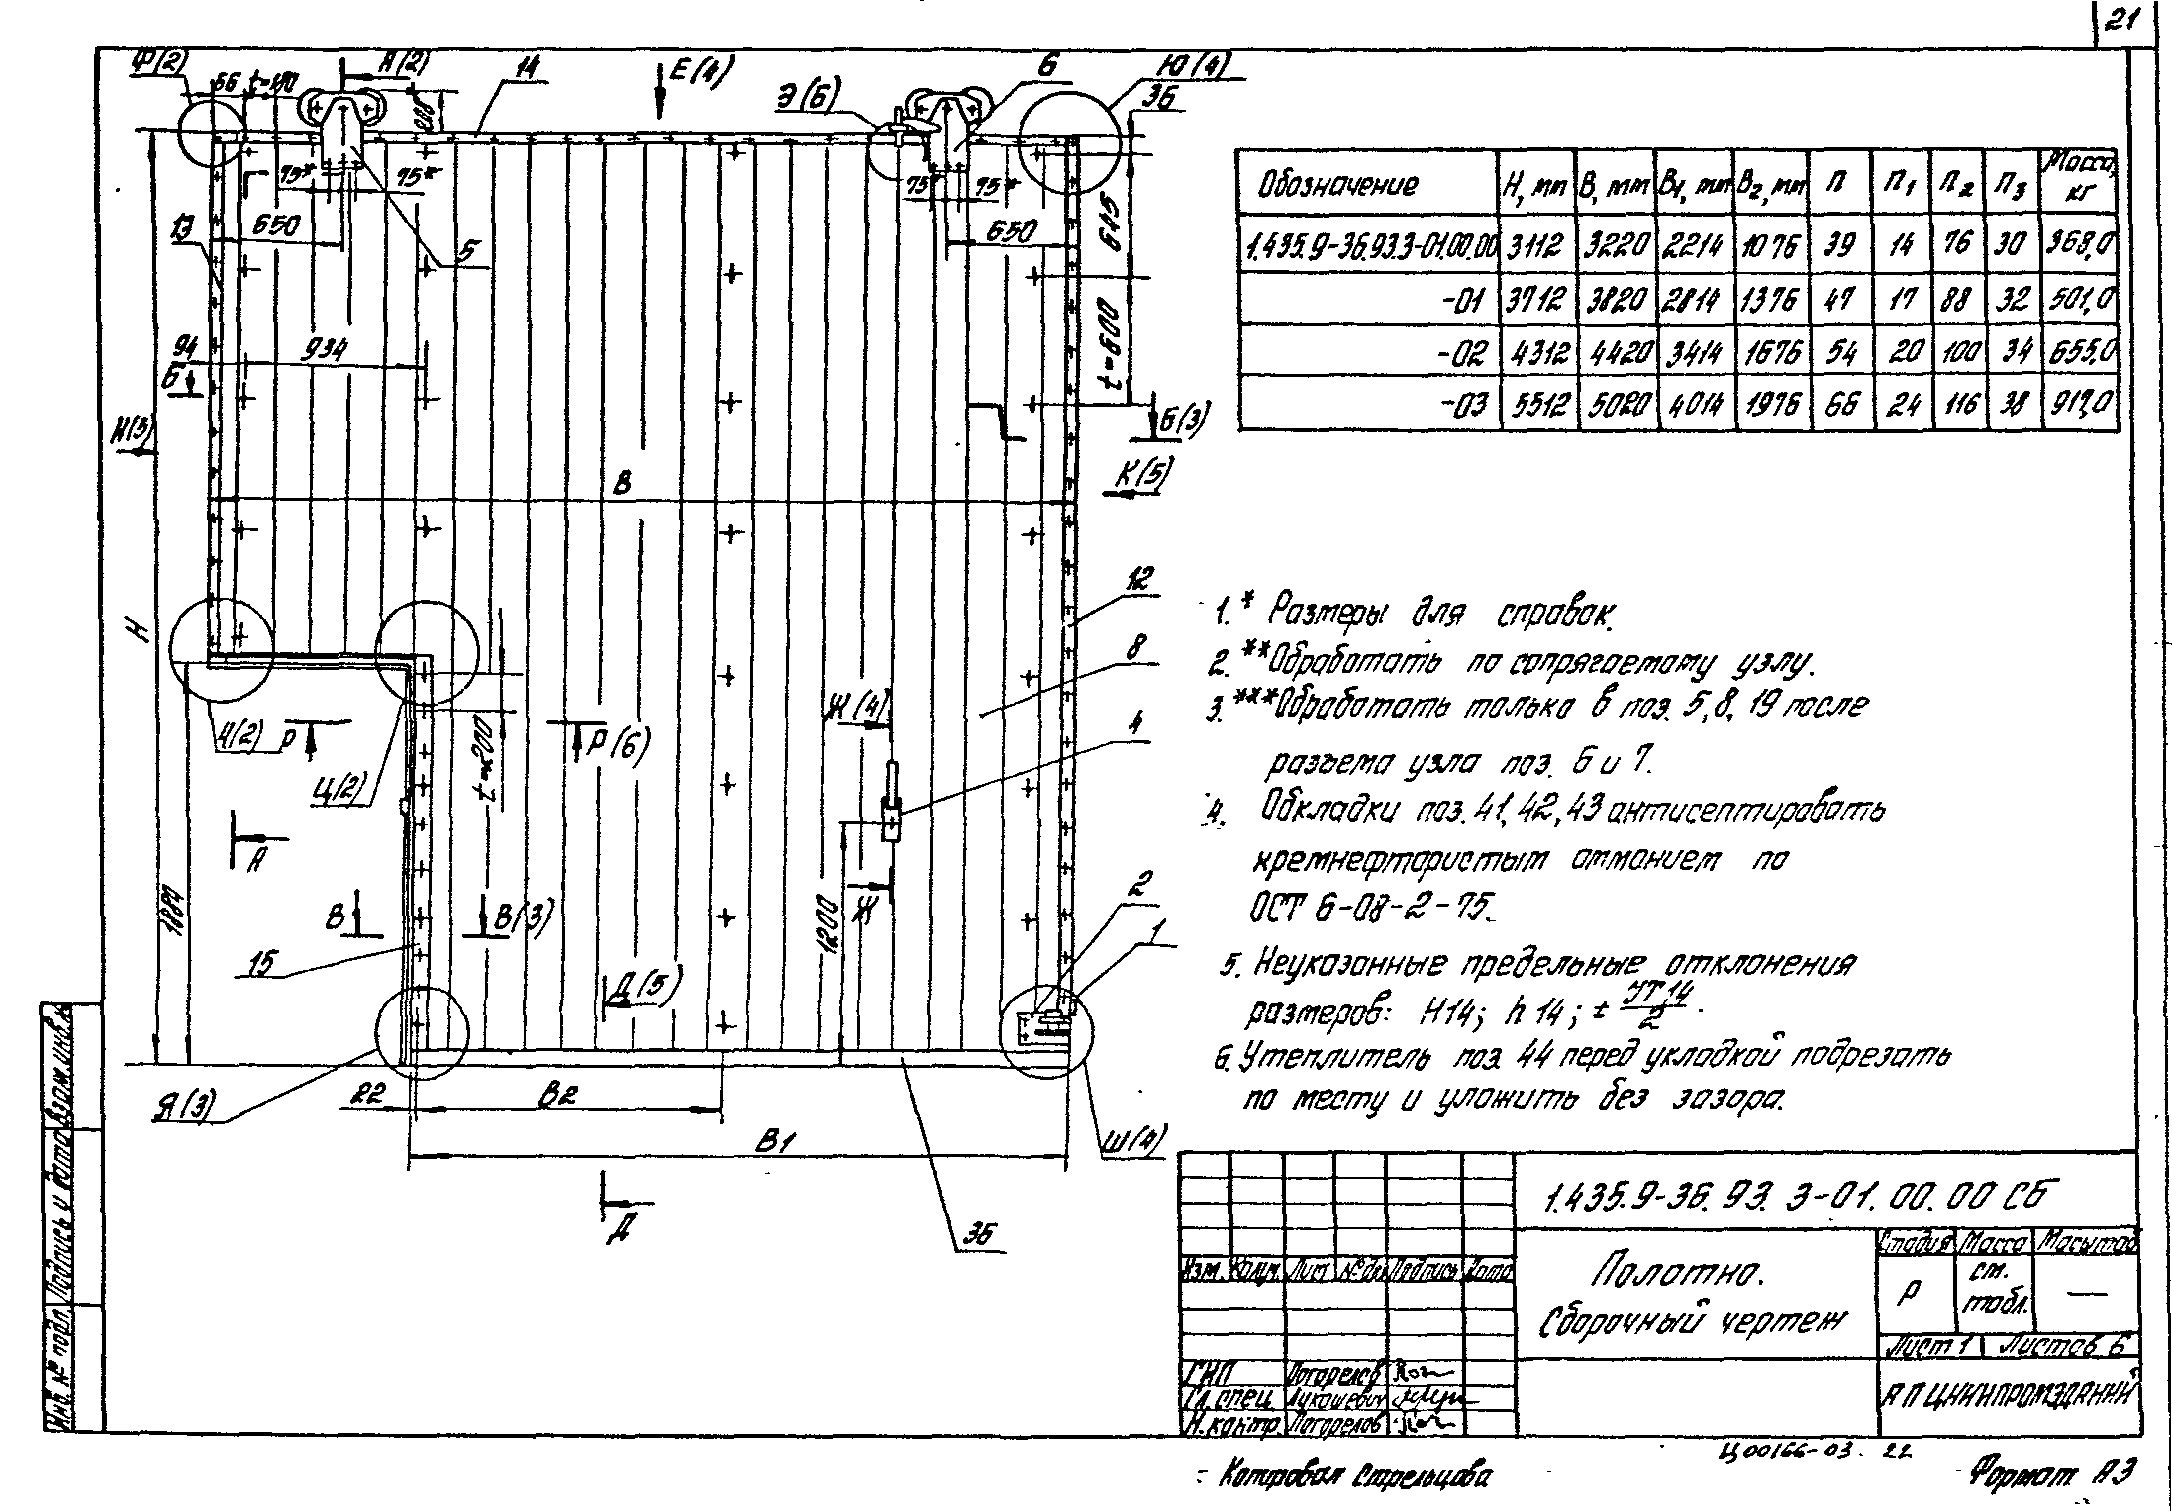 21
Ф(2)
56
А(2)
14
Е(4)
Э(6)
6
Ю(4)
36
75*
75*
75*
75*
650
650
645
13
5
94
934
Б
t=600
Б(3)
И(3)
К(5)
В
12
Н
8
Ж(4)
4
Р
Р(6)
t=200
Ц(2)
А
1884
1200
Ж
2
В
В(3)
1
15
Д(5)
Я(3)
22
В2
В1
Ш(4)
Д
36
Обозначение Н, мм В, мм В1, мм В2, мм n n1 n2 n3 Масса, кг
1.435.9-36.93.3-01.00.00 3112 3220 2214 1076 39 14 76 30 368,0
-01 3712 3820 2814 1376 47 17 88 32 501,0
-02 4312 4420 3414 1676 54 20 100 34 655,0
-03 5512 5020 4014 1976 66 24 116 38 917,0
1.* Размеры для справок.
2.**Обработать по сопрягаемому узлу.
3.***Обработать только в поз. 5, 8, 19 после
разъема узла поз. 6 и 7.
4. Обкладки поз. 41, 42, 43 антисептировать
кремнефтористым аммонием по
ОСТ 6-08-2-75.
5. Неуказанные предельные отклонения
размеров: H14; h14; ± IT14/2.
6. Утеплитель поз. 44 перед укладкой подрезать
по месту и уложить без зазора.
1.435.9-36.93.3-01.00.00 СБ
Полотно.
Сборочный чертеж
Стадия Масса Масштаб
Р см. табл. —
Лист 1 Листов 6
АП ЦНИИПРОМЗДАНИЙ
Изм. Кол.уч. Лист № док Подпись Дата
ГИП Погорелов
Гл. спец. Лукашевич
Н. контр. Погорелов
Взам. инв. №
Подпись и дата
Инв. № подл.
Ц00166-03 22
Копировал Стрельцова
Формат А3